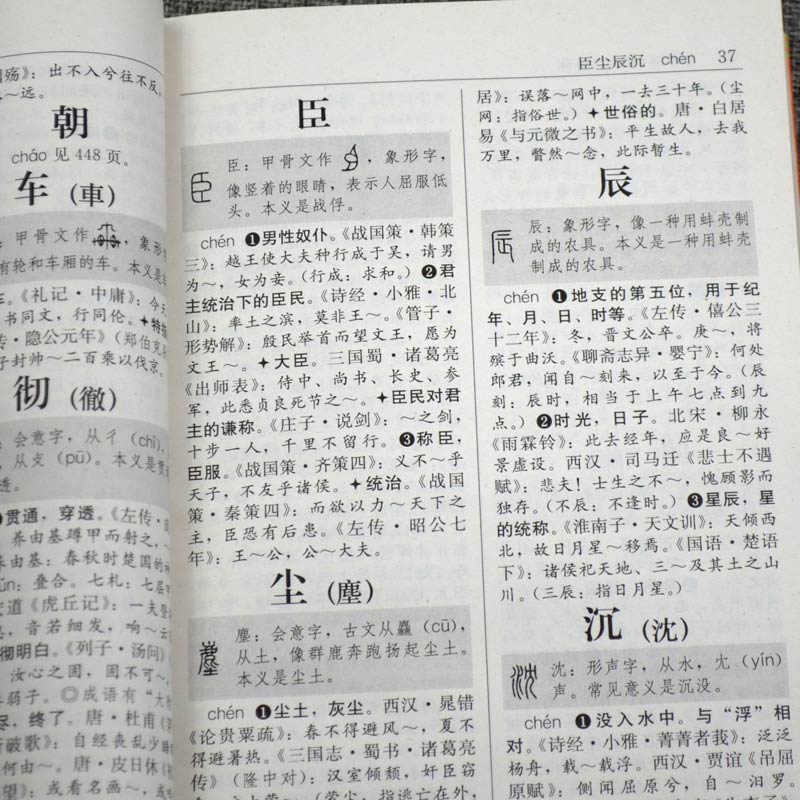 殇》：出不入兮往不反，
～远。
朝
cháo 见 448 页。
车（車）
：甲骨文作，象形字，
有轮和车厢的车。本义是
《礼记·中庸》：今天
书同文，行同伦。✦特指
传·隐公元年》（郑伯克
子封帅～二百乘以伐京。
彻（徹）
：会意字，从彳（chì），
从攴（pū）。本义是贯
透。
❶贯通，穿透。《左传·
养由基蹲甲而射之，～
养由基：春秋时楚国的神
叠合。七札：七层甲
宏道《虎丘记》：一夫登
，音若细发，响～云
彻明白。《列子·汤问》
汝心之固，固不可～，
弱子。◎成语有“大
尽，终了。唐·杜甫《茅
破歌》：自经丧乱少睡
何由～。唐·皮日休《
望》：或看名画～，或
臣尘辰沉 chén 37
臣
臣：甲骨文作，象形字，
像竖着的眼睛，表示人屈服低
头。本义是战俘。
chén ❶男性奴仆。《战国策·韩策
三》：越王使大夫种行成于吴，请男
为～，女为妾。（行成：求和。）❷君
主统治下的臣民。《诗经·小雅·北
山》：率土之滨，莫非王～。《管子·
形势解》：殷民举首而望文王，愿为
文王～。✦大臣。三国蜀·诸葛亮
《出师表》：侍中、尚书、长史、参
军，此悉贞良死节之～。✦臣民对君
主的谦称。《庄子·说剑》：～之剑，
十步一人，千里不留行。❸称臣，
臣服。《战国策·齐策四》：义不～乎
天子，不友乎诸侯。✦统治。《战国
策·秦策四》：而欲以力～天下之
主，臣恐有后患。《左传·昭公七
年》：王～公，公～大夫。
尘（塵）
塵：会意字，古文从麤（cū），
从土，像群鹿奔跑扬起尘土。
本义是尘土。
chén ❶尘土，灰尘。西汉·晁错
《论贵粟疏》：春不得避风～，夏不
得避暑热。《三国志·蜀书·诸葛亮
传》（隆中对）：汉室倾颓，奸臣窃
居》：误落～网中，一去三十年。（尘
网：指俗世。）✦世俗的。唐·白居
易《与元微之书》：平生故人，去我
万里，瞥然～念，此际暂生。
辰
辰：象形字，像一种用蚌壳制
成的农具。本义是一种用蚌壳
制成的农具。
chén ❶地支的第五位，用于纪
年、月、日、时等。《左传·僖公三
十二年》：冬，晋文公卒。庚～，将
殡于曲沃。《聊斋志异·婴宁》：何处
郎君，闻自～刻来，以至于今。（辰
刻：辰时，相当于上午七点到九
点。）❷时光，日子。北宋·柳永
《雨霖铃》：此去经年，应是良～好
景虚设。西汉·司马迁《悲士不遇
赋》：悲夫！士生之不～，愧顾影而
独存。（不辰：不逢时。）❸星辰，星
的统称。《淮南子·天文训》：天倾西
北，故日月星～移焉。《国语·楚语
下》：诸侯祀天地、三～及其土之山
川。（三辰：指日月星。）
沉（沈）
沈：形声字，从水，冘（yín）
声。常见意义是沉没。
chén ❶没入水中。与“浮”相
对。《诗经·小雅·菁菁者莪》：泛泛
杨舟，载～载浮。西汉·贾谊《吊屈
原赋》：侧闻屈原兮，自～汨罗。